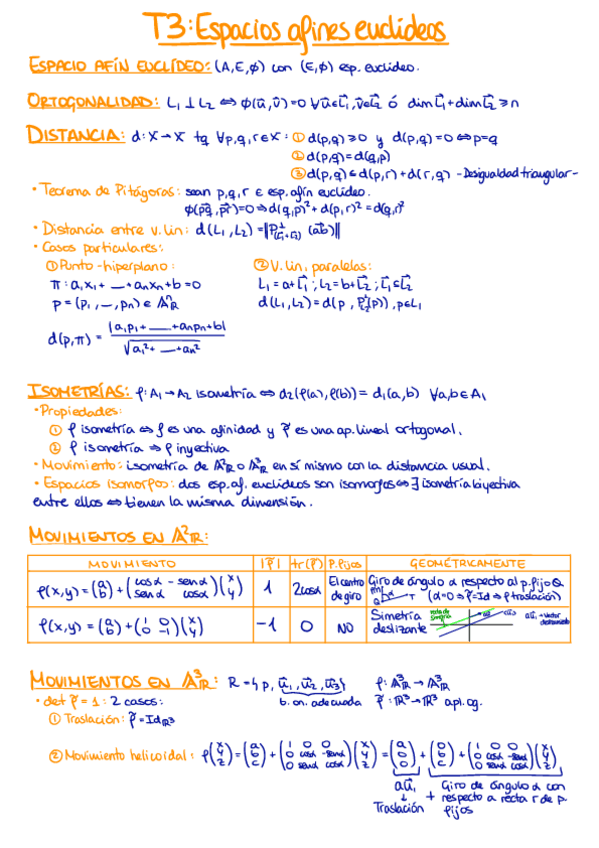 T3: Espacios afines euclídeos
ESPACIO AFÍN EUCLÍDEO: (A,E,ϕ) con (E,ϕ) esp. euclídeo.
ORTOGONALIDAD: L₁ ⊥ L₂ ⇔ ϕ(u⃗,v⃗)=0 ∀u⃗∈L⃗₁, v⃗∈L⃗₂ ó dim L⃗₁ + dim L⃗₂ ≥ n
DISTANCIA: d: X → X tq ∀p,q,r∈X: ① d(p,q) ≥ 0 y d(p,q)=0 ⇔ p=q
② d(p,q)=d(q,p)
③ d(p,q) ≤ d(p,r)+d(r,q) - Desigualdad triangular -
• Teorema de Pitágoras: sean p,q,r ∈ esp. afín euclídeo.
ϕ(p⃗q, p⃗r)=0 ⇒ d(q,p)²+d(p,r)² = d(q,r)²
• Distancia entre v. lin: d(L₁,L₂)=‖P^⊥(L⃗₁+L⃗₂)(a⃗b)‖
• Casos particulares:
① Punto-hiperplano: ② V. lin. paralelas:
π: a₁x₁ + __ + aₙxₙ + b = 0 L₁ = a+L⃗₁; L₂ = b+L⃗₂; L⃗₁⊆L⃗₂
p = (p₁, __, pₙ) ∈ Aⁿℝ d(L₁,L₂)=d(p, P_L₂(p)), p∈L₁
d(p,π) = |a₁p₁ + __ + aₙpₙ + b| / √(a₁² + __ + aₙ²)
ISOMETRÍAS: f: A₁ → A₂ isometría ⇔ d₂(f(a), f(b)) = d₁(a,b) ∀a,b∈A₁
• Propiedades:
① f isometría ⇔ f es una afinidad y f⃗ es una ap. lineal ortogonal.
② f isometría ⇒ f inyectiva
• Movimiento: isometría de A²ℝ o A³ℝ en sí mismo con la distancia usual.
• Espacios isomorfos: dos esp. af. euclídeos son isomorfos ⇔ ∃ isometría biyectiva
entre ellos ⇔ tienen la misma dimensión.
MOVIMIENTOS EN A²ℝ:
MOVIMIENTO |f⃗| tr(f⃗) P. fijos GEOMÉTRICAMENTE
f(x,y) = (a b) + (cosα -senα senα cosα)(x y) 1 2cosα El centro de giro Giro de ángulo α respecto al p. fijo Q (α=0 ⇒ f⃗=Id ⇒ f traslación)
f(x,y) = (a b) + (1 0 0 -1)(x y) -1 0 NO Simetría deslizante recta de simetría au⃗₁ au⃗₁ = vector
MOVIMIENTOS EN A³ℝ: R = {p, u⃗₁, u⃗₂, u⃗₃} f: A³ℝ → A³ℝ
b. on. adecuada f⃗: ℝ³ → ℝ³ apl. og.
• det f⃗ = 1: 2 casos:
① Traslación: f⃗ = Idℝ³
② Movimiento helicoidal: f(x y z) = (a b c) + (1 0 0 0 cosα -senα 0 senα cosα)(x y z) = (a 0 0) + (0 b c) + (1 0 0 0 cosα -senα 0 senα cosα)(x y z)
au⃗₁ ↓ Traslación + Giro de ángulo α con respecto a recta r de p. fijos